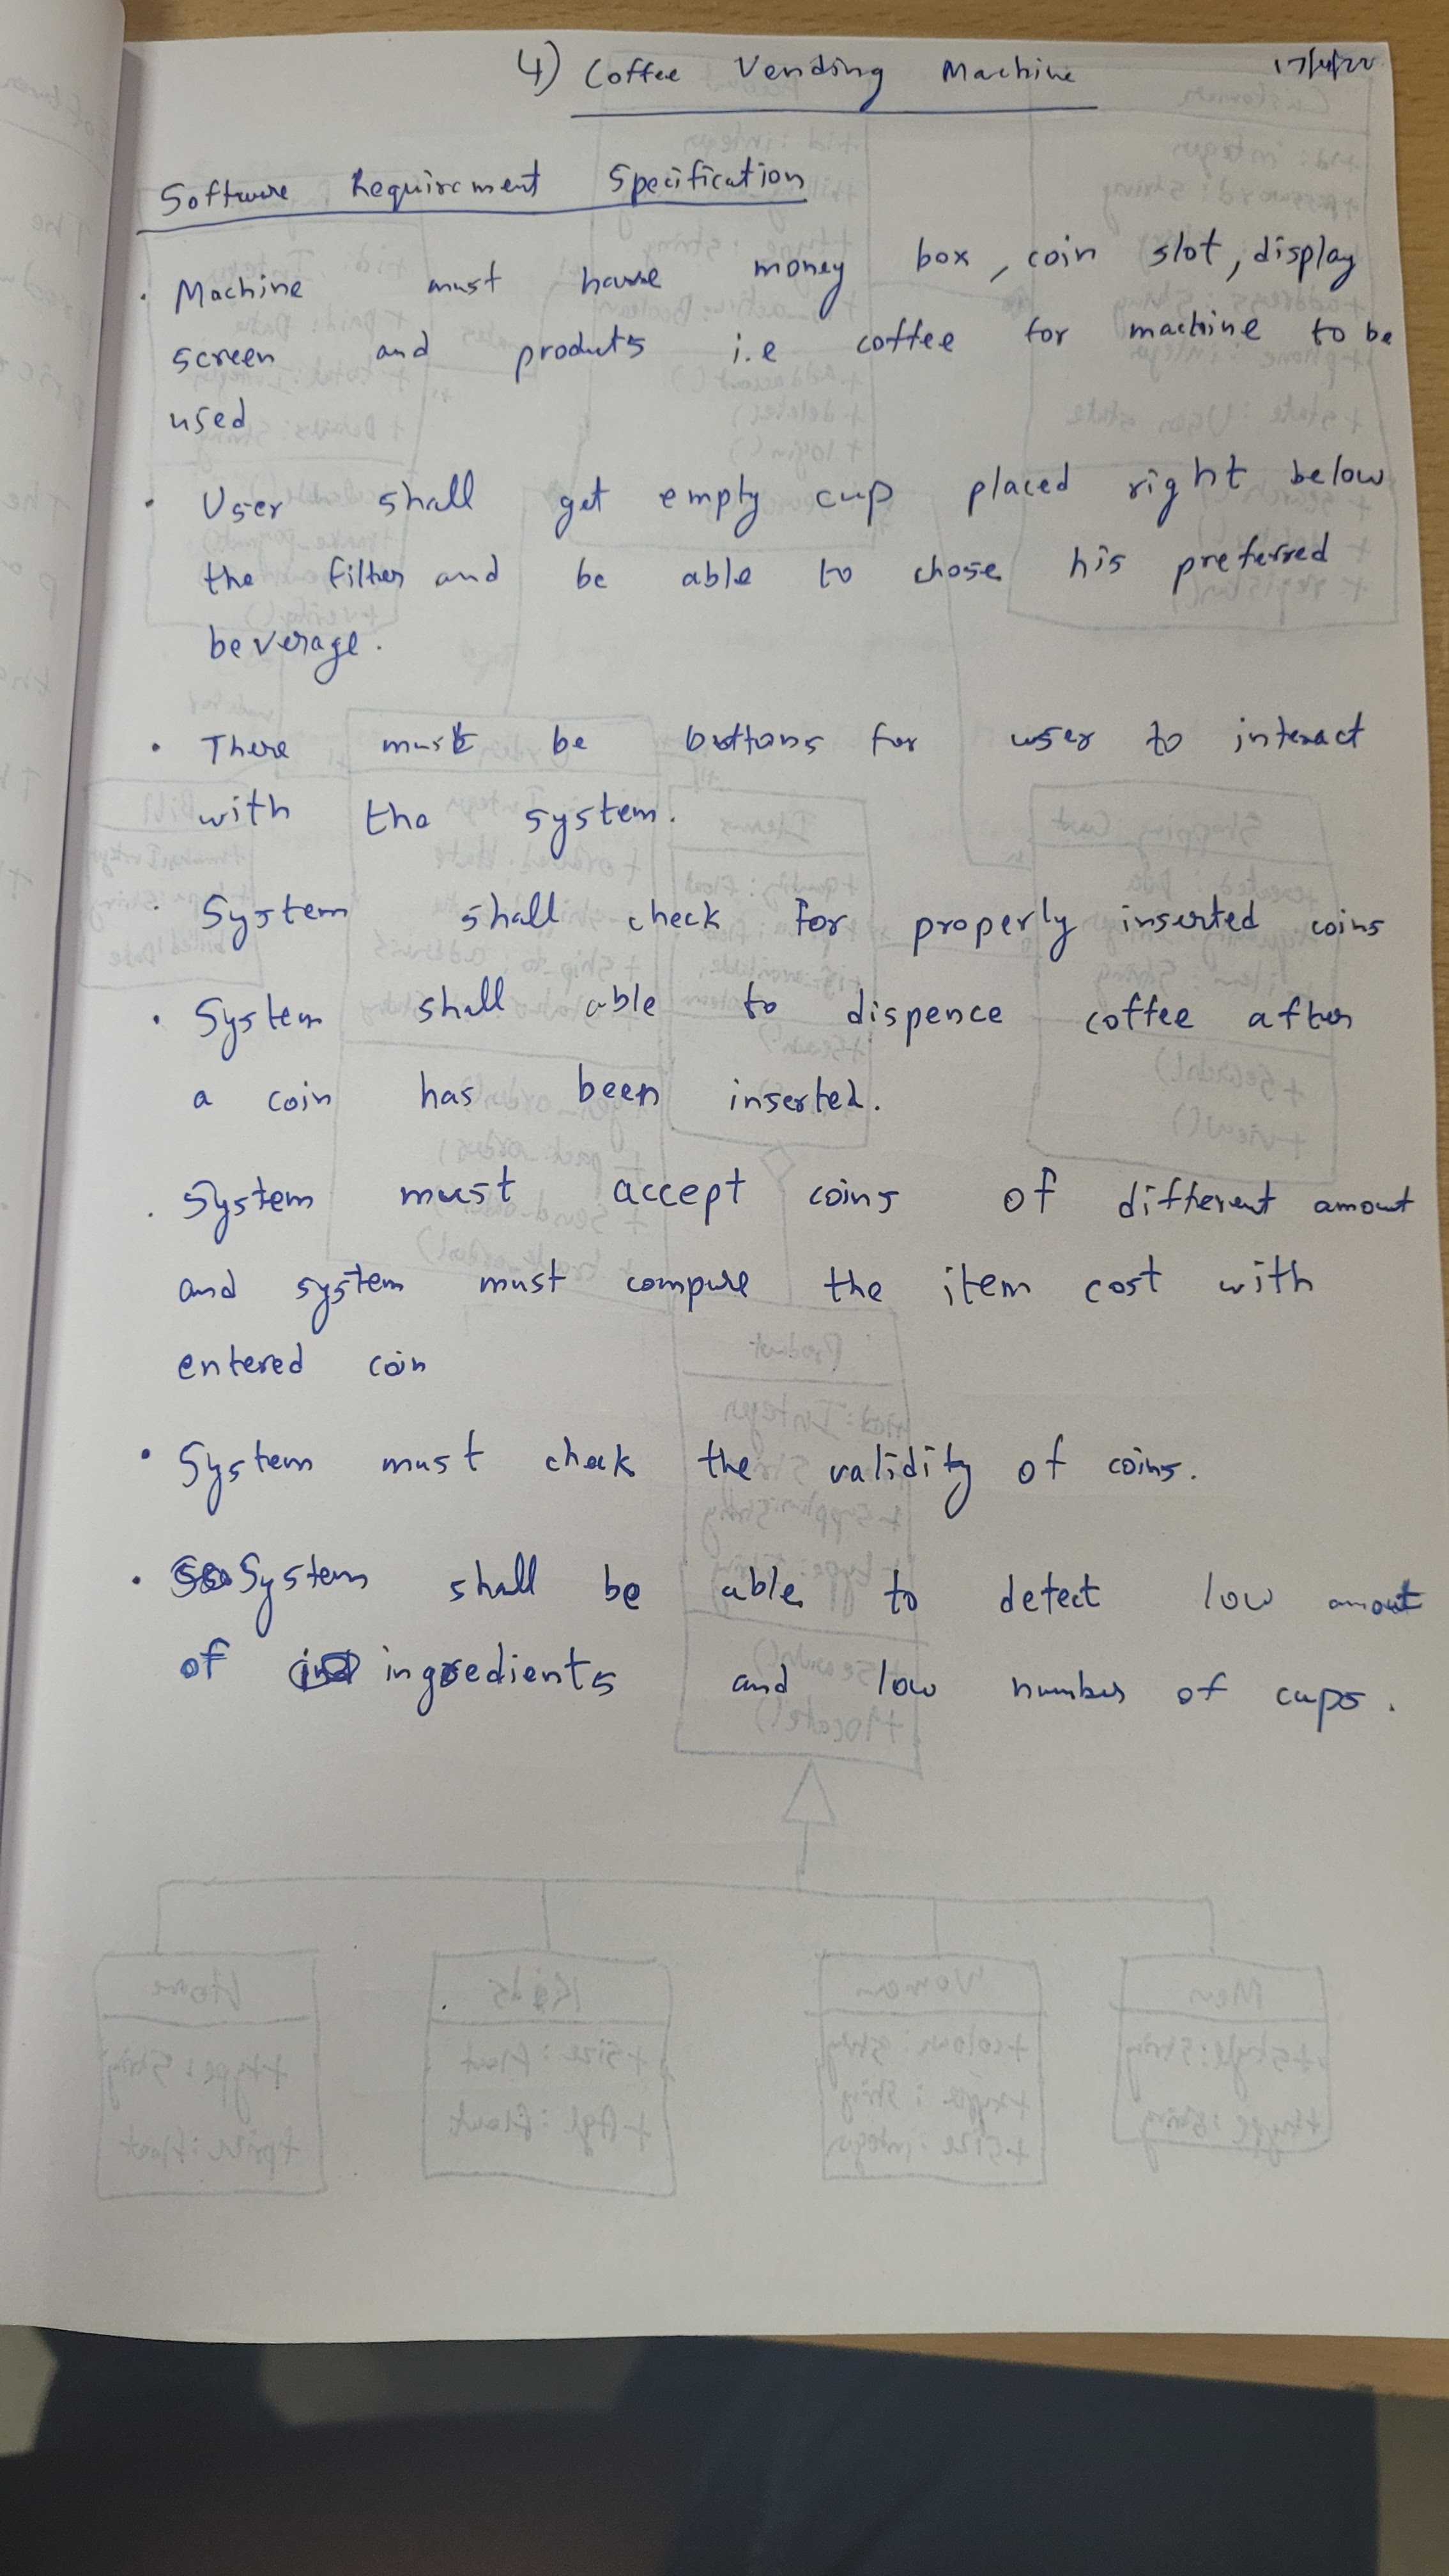 4) Coffee Vending Machine
Software Requirement Specification
. Machine must have money box, coin slot, display
screen and products i.e coffee for machine to be
used
. User shall get empty cup placed right below
the filter and be able to chose his preferred
beverage.
. There must be buttons for user to interact
with the system.
. System shall check for properly inserted coins
. System shall able to dispence coffee after
a coin has been inserted.
. System must accept coins of different amount
and system must compare the item cost with
entered coin
. System must check the validity of coins.
. System shall be able to detect low amout
of ingredients and low number of cups.